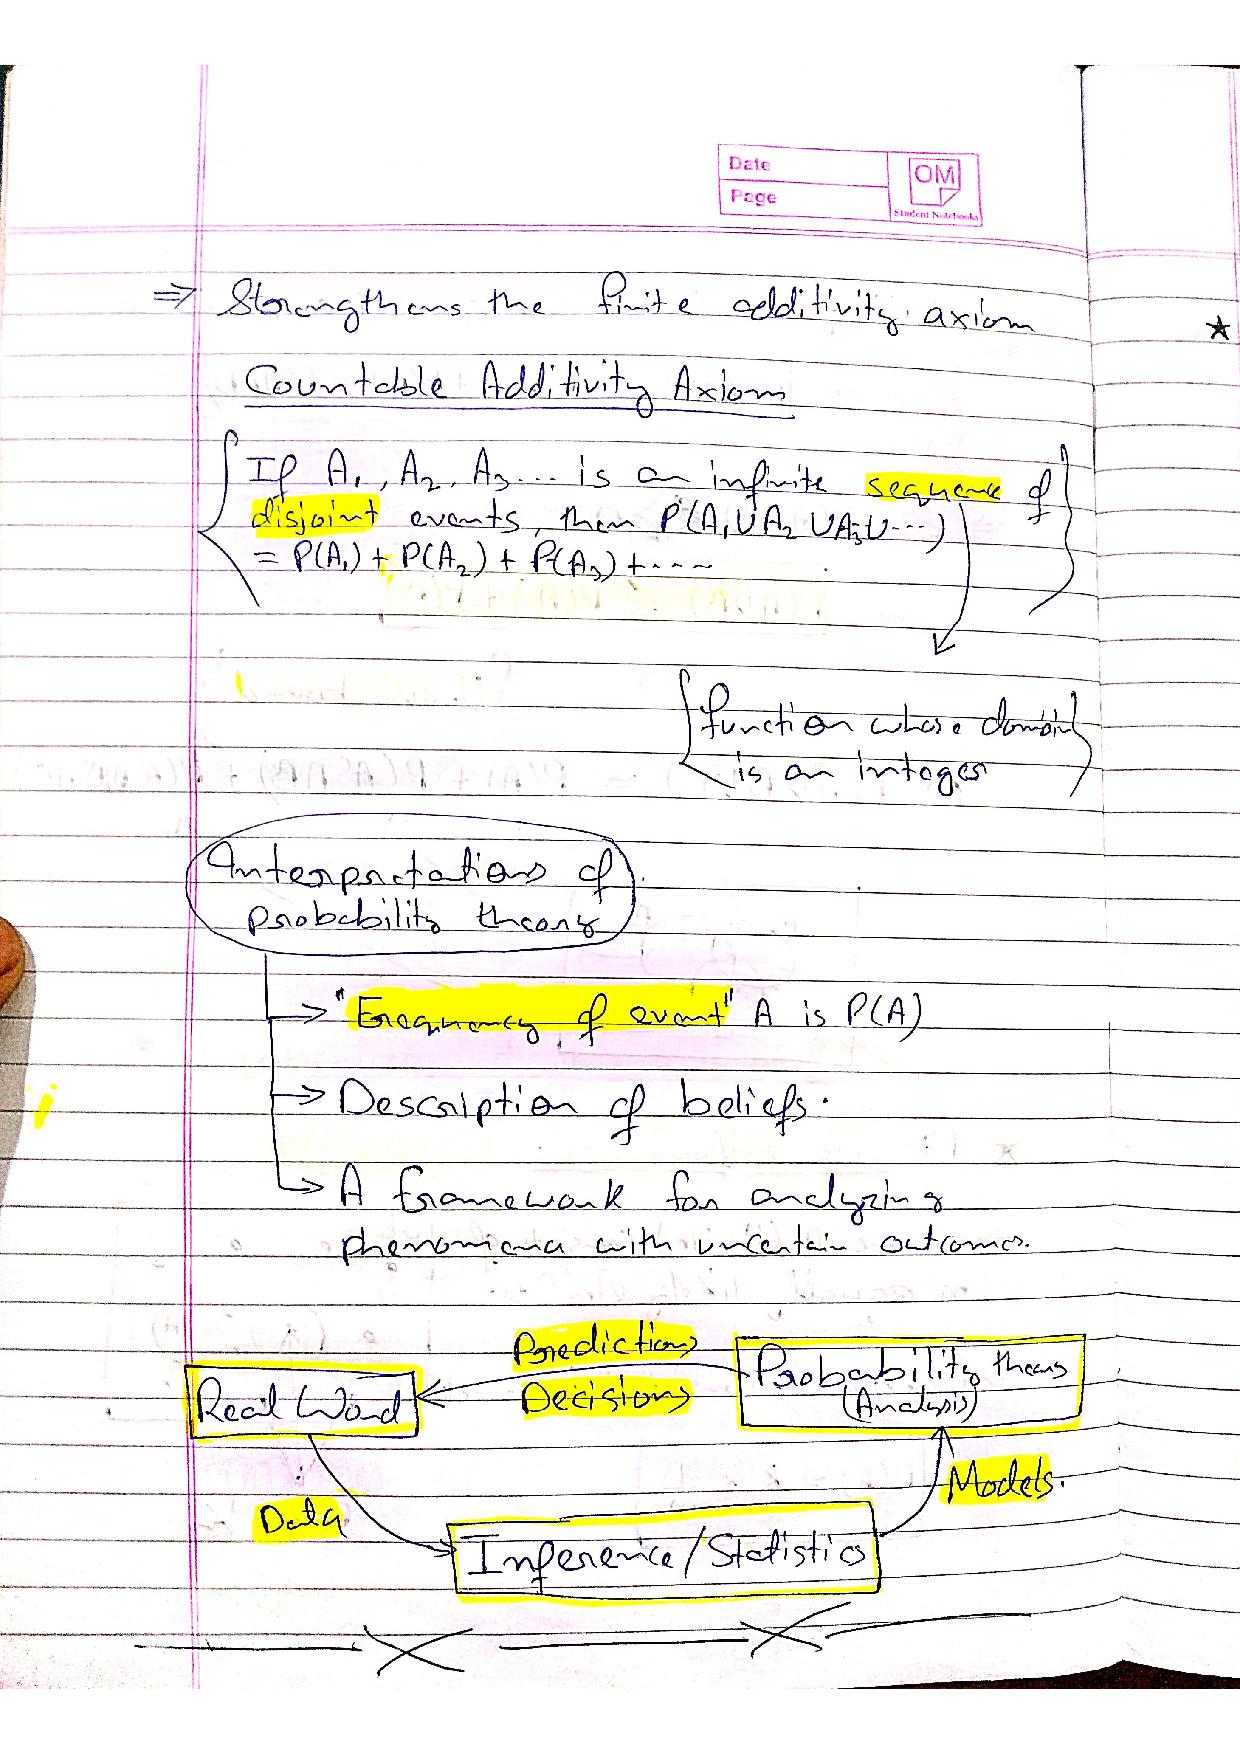 Date
Page
OM
Student Notebooks
⇒ Strengthens the finite additivity axiom
Countable Additivity Axiom
If A₁, A₂, A₃... is an infinite sequence of
disjoint events, then P(A₁∪A₂∪A₃∪...)
= P(A₁) + P(A₂) + P(A₃) + ....
function whose domain
is an integer
Interpretations of
probability theory
→ "Frequency of event" A is P(A)
→ Description of beliefs.
→ A framework for analyzing
phenomena with uncertain outcomes.
Predictions
Decisions
Probability theory
(Analysis)
Real Word
Data
Models.
Inference/Statistics